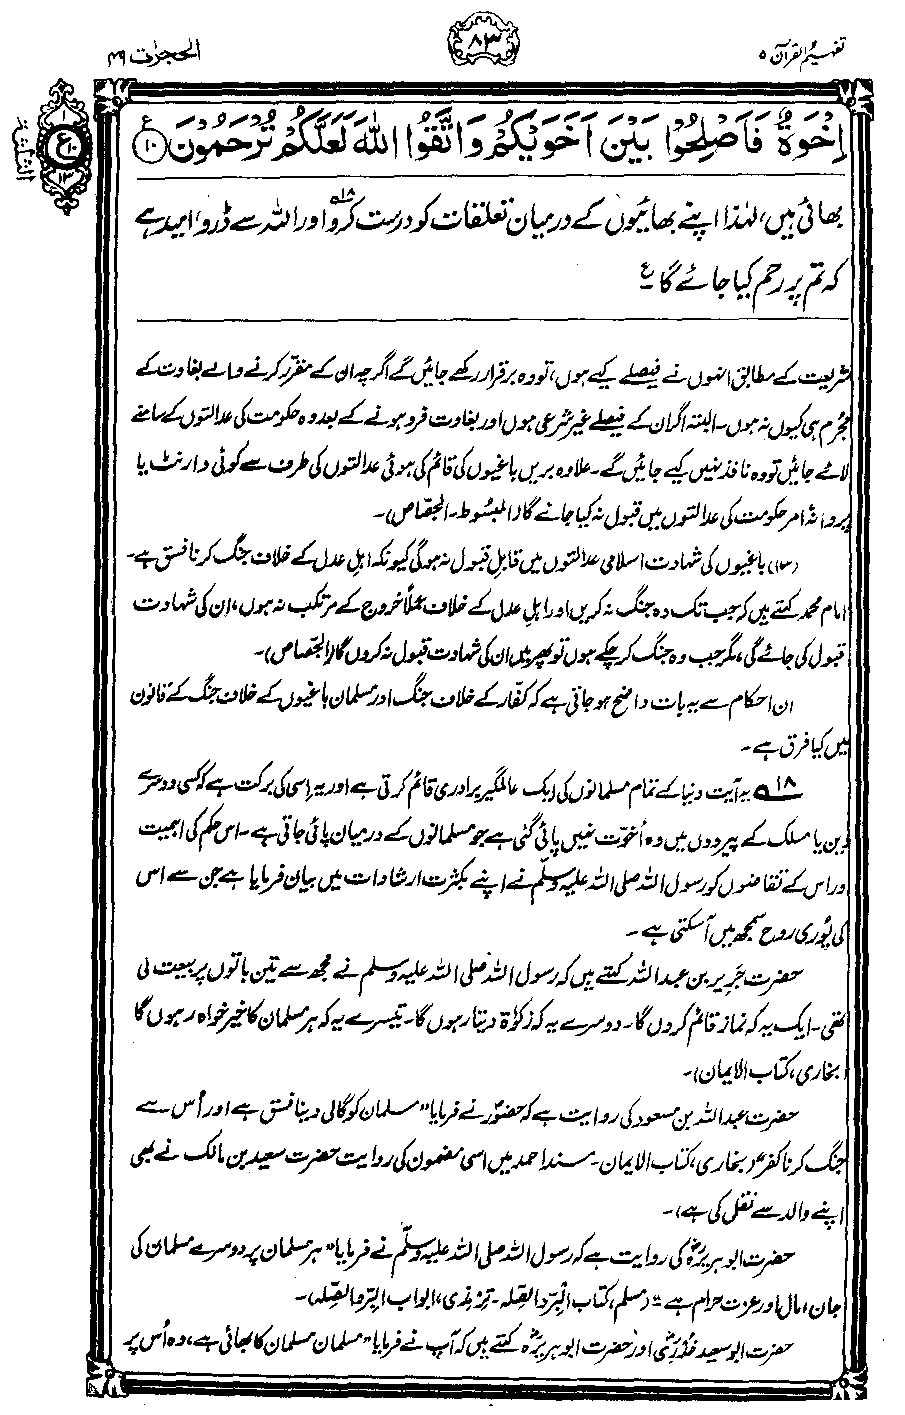 تفہیم القرآن ۵
۸۳
الحجرات ۴۹
اِخْوَةٌ فَاَصْلِحُوْا بَيْنَ اَخَوَيْكُمْ وَاتَّقُوا اللّٰهَ لَعَلَّكُمْ تُرْحَمُوْنَ ۱۰ ع
بھائی ہیں، لہٰذا اپنے بھائیوں کے درمیان تعلقات کو درست کرو ۱۸ اور اللہ سے ڈرو، امید ہے
کہ تم پر رحم کیا جائے گا۔ ع
شریعت کے مطابق انہوں نے فیصلے کیے ہوں، تو وہ برقرار رکھے جائیں گے اگرچہ ان کے مقرر کرنے والے بغاوت کے
مجرم ہی کیوں نہ ہوں۔ البتہ اگر ان کے فیصلے غیر شرعی ہوں اور بغاوت فرو ہونے کے بعد وہ حکومت کی عدالتوں کے سامنے
لائے جائیں تو وہ نافذ نہیں کیے جائیں گے۔ علاوہ بریں باغیوں کی قائم کی ہوئی عدالتوں کی طرف سے کوئی وارنٹ یا
پروانۂ امر حکومت کی عدالتوں میں قبول نہ کیا جائے گا (المبسُوط۔ الجصاص)۔
(۱۳) باغیوں کی شہادت اسلامی عدالتوں میں قابلِ قبول نہ ہوگی کیونکہ اہلِ عدل کے خلاف جنگ کرنا فسق ہے۔
امام محمد کہتے ہیں کہ جب تک وہ جنگ نہ کریں اور اہلِ عدل کے خلاف عملاً خروج کے مرتکب نہ ہوں، ان کی شہادت
قبول کی جائے گی، مگر جب وہ جنگ کر چکے ہوں تو پھر میں ان کی شہادت قبول نہ کروں گا (الجصّاص)۔
ان احکام سے یہ بات واضح ہو جاتی ہے کہ کفّار کے خلاف جنگ اور مسلمان باغیوں کے خلاف جنگ کے قانون
میں کیا فرق ہے۔
۱۸ یہ آیت دنیا کے تمام مسلمانوں کی ایک عالمگیر برادری قائم کرتی ہے اور یہ اِسی کی برکت ہے کہ کسی دوسرے
دین یا مسلک کے پیرووں میں وہ اُخوّت نہیں پائی گئی ہے جو مسلمانوں کے درمیان پائی جاتی ہے۔ اس حکم کی اہمیت
اور اس کے تقاضوں کو رسول اللہ صلی اللہ علیہ وسلّم نے اپنے بکثرت ارشادات میں بیان فرمایا ہے جن سے اس
کی پُوری روح سمجھ میں آ سکتی ہے۔
حضرت جَرِیر بن عبداللہ کہتے ہیں کہ رسول اللہ صلی اللہ علیہ وسلم نے مجھ سے تین باتوں پر بیعت لی
تھی۔ ایک یہ کہ نماز قائم کروں گا۔ دوسرے یہ کہ زکوٰۃ دیتا رہوں گا۔ تیسرے یہ کہ ہر مسلمان کا خیر خواہ رہوں گا
(بخاری، کتاب الایمان)۔
حضرت عبداللہ بن مسعود کی روایت ہے کہ حضورؐ نے فرمایا "مسلمان کو گالی دینا فسق ہے اور اُس سے
جنگ کرنا کفر" (بخاری، کتاب الایمان۔ مسند احمد میں اسی مضمون کی روایت حضرت سعید بن مالک نے بھی
اپنے والد سے نقل کی ہے)۔
حضرت ابو ہریرہؓ کی روایت ہے کہ رسول اللہ صلی اللہ علیہ وسلّم نے فرمایا "ہر مسلمان پر دوسرے مسلمان کی
جان، مال اور عزت حرام ہے" (مسلم، کتاب البِرّ والصِّلہ۔ ترمذی، ابواب البِرّ والصِّلہ)۔
حضرت ابو سعید خُدریؓ اور حضرت ابو ہریرہؓ کہتے ہیں کہ آپ نے فرمایا "مسلمان مسلمان کا بھائی ہے، وہ اُس پر